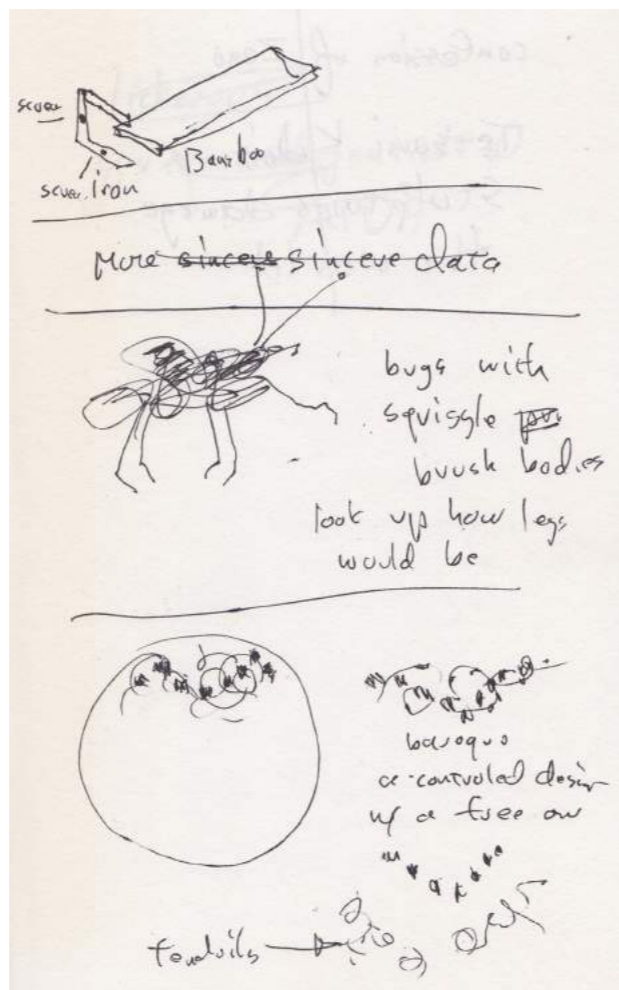 screw
Bamboo
screw. Iron
More sincere sincere data
bugs with
squiggle
brush bodies
look up how legs
would be
baroque
a controled design
w/ a free
tendrils